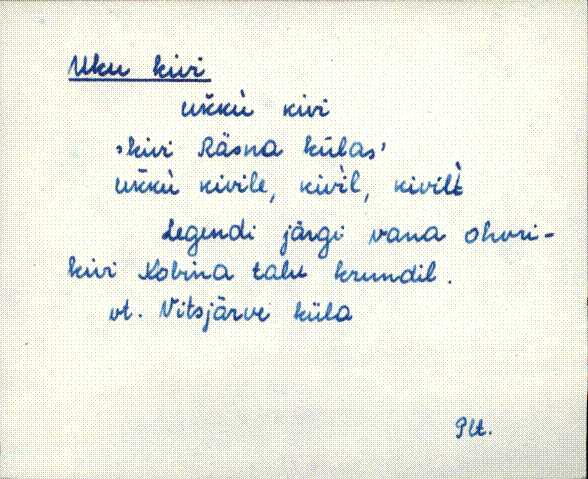 Uku kivi
ukkù kivi
'kivi Räsna külas'
ukkù kivile, kivìl, kivilt̀
Legendi järgi vana ohvri-
kivi Kobina talu krundil.
vt. Vitsjärve küla
Plt.